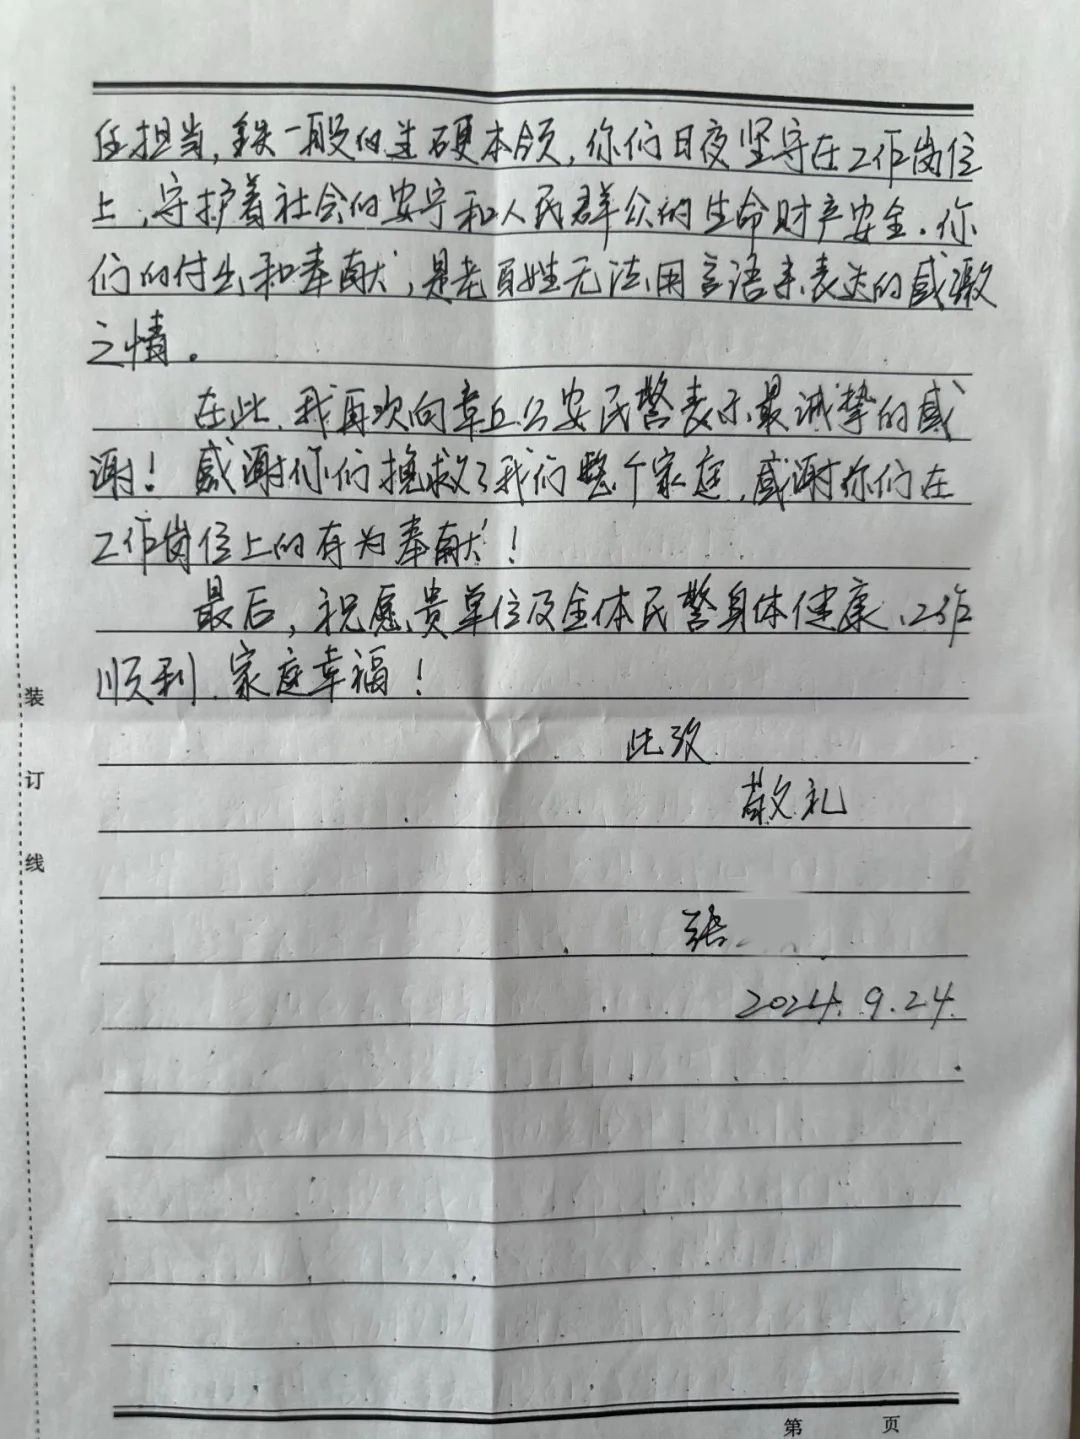 任担当,铁一般的过硬本领,你们日夜坚守在工作岗位
上,守护着社会的安宁和人民群众的生命财产安全.你
们的付出和奉献,是老百姓无法用言语来表达的感激
之情。
在此,我再次向章丘公安民警表示最诚挚的感
谢!感谢你们挽救了我们整个家庭,感谢你们在
工作岗位上的有为奉献!
最后,祝愿贵单位及全体民警身体健康、工作
顺利、家庭幸福!
此致
敬礼
张
2024.9.24.
装
订
线
第 页